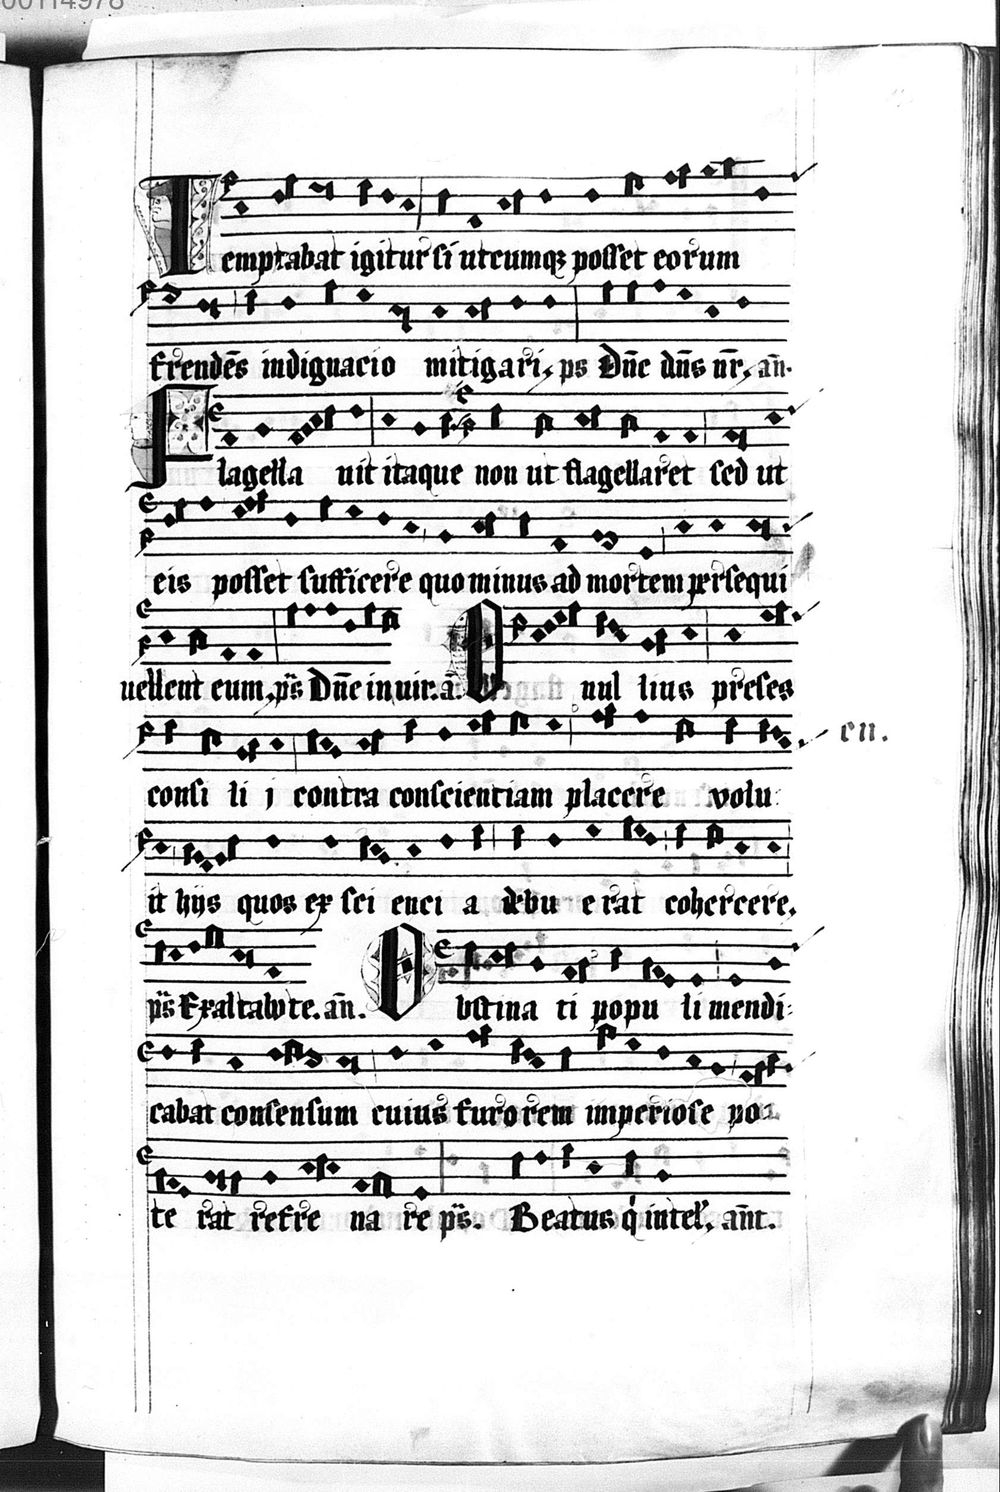 00114978
Temptabat igitur si utcumqꝫ posset eorum
frendēs indignacio mitigari, ps Dn̄e dn̄s nr̄, an̄.
Flagella uit itaque non ut flagellaret sed ut
eis posset sufficere quo minus ad mortem persequi
uellent eum, ps̄ Dn̄e in uir. ā. Nul lius preses
en.
consi li i contra conscientiam placere volu
it hijs quos ex sci enci a debu e rat cohercere,
ps̄ Exaltabo te. an̄. Obstina ti popu li mendi
cabat consensum cuius furorem imperiose po
te rat refre na re ps̄. Beatus q̇ intel, an̄t.